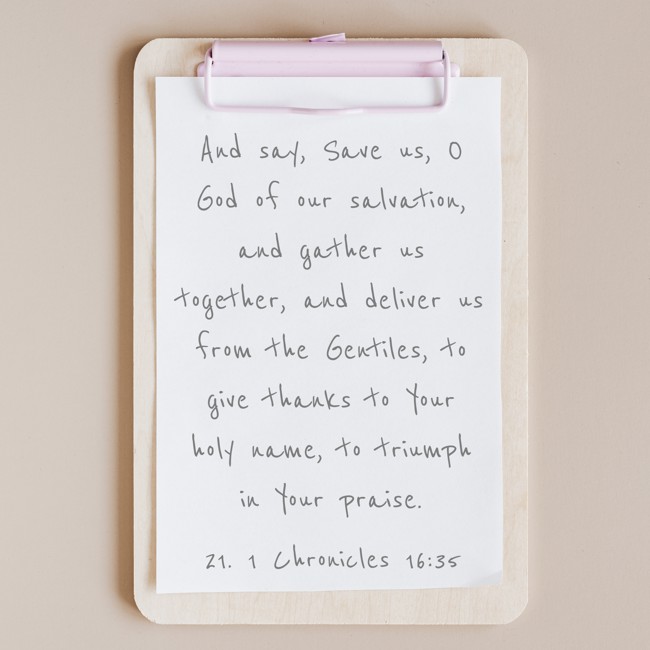 And say, Save us, O
God of our salvation,
and gather us
together, and deliver us
from the Gentiles, to
give thanks to Your
holy name, to triumph
in Your praise.
21. 1 Chronicles 16:35